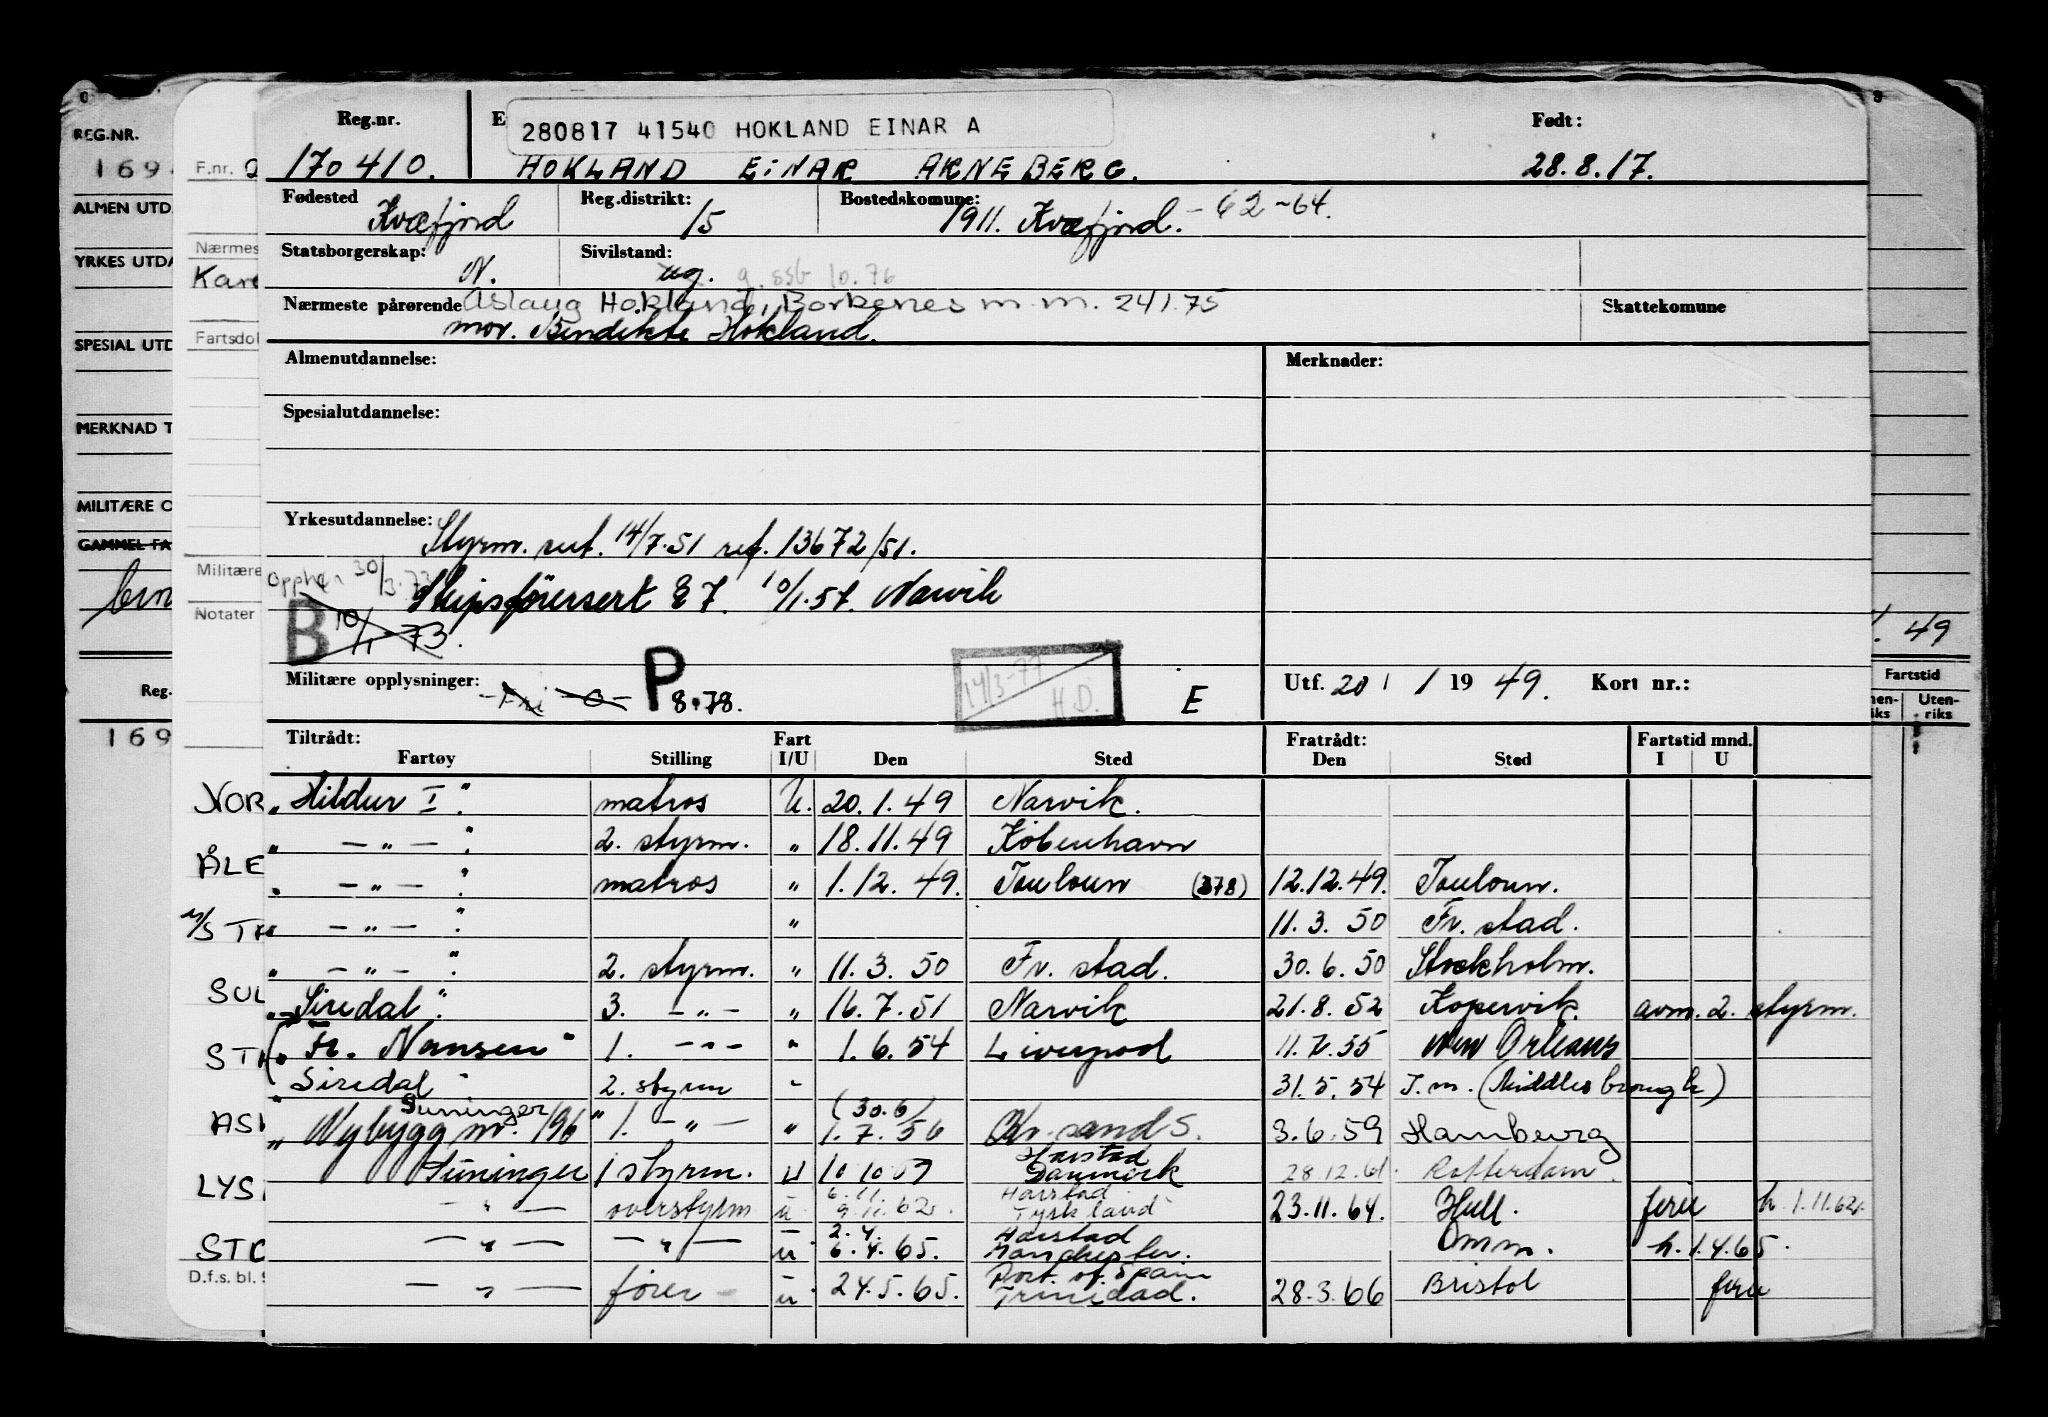 Reg.nr.
280817 41540 HOKLAND EINAR A
Født:
170410. HOKLAND EINAR ARNE BERG. 28.8.17.
Fødested Kvæfjord Reg.distrikt: 15 Bostedskomune: 1911. Kvæfjord. - 62-64.
Statsborgerskap: N. Sivilstand: ug. g. ssb 10.76
Nærmeste pårørende Aslaug Hokland, Borkenes m.m. 241.75 Skattekomune
mor. Bendikte Hokland.
Almenutdannelse: Merknader:
Spesialutdannelse:
Yrkesutdannelse: Styrm. sert. 14/7.51 ref. 13672/51.
30/3.73 Skipsførersert E 7. 10/1.57. Narvik
B 10/11-73.
Militære opplysninger: P 8.78. 14/3-77 H.D. E Utf. 20 / 1 19 49. Kort nr.:
Tiltrådt: Fart Fratrådt: Fartstid mnd.
Fartøy Stilling I/U Den Sted Den Sted I U
"Hildur I" matros U. 20.1.49 Narvik.
" — " — " 2. styrm. " 18.11.49 København
" — " — " matros " 1.12.49. Touloun (378) 12.12.49. Touloun.
" — " — " " 11.3.50 Fr. stad.
" — " — " 2. styrm. " 11.3.50 Fr. stad. 30.6.50 Stockholm.
"Siredal" 3. — " — " 16.7.51 Narvik 21.8.52 Kopervik avm. 2. styrm.
"Fr. Nansen" 1. — " — " 1.6.54 Liverpool 11.7.55 New Orleans
"Siredal" 2. styrm " 31.5.54 T.m. (Middlesbrough)
Suninger (30.6)
"Nybygg nr. 196" 1. — " — " 1.7.56 Kr. sand S. 3.6.59 Hamburg
Harstad
Suninger 1 styrm. U 10 10 09 Danmark 28.12.61. Rotterdam.
6.11. Harstad
— " — overstyrm u 9.11.62. Tyskland 23.11.64. Hull. ferie h. 1.11.62.
2.4. Harstad
— " — — " — u 6.4.65. Manchester. Omm. h. 1.4.65.
Port. of. Spain
— " — fører u 24.5.65. Trinidad. 28.3.66 Bristol ferie
REG.NR.
169
ALMEN UTD.
YRKES UTDA
SPESIAL UTD
MERKNAD T
MILITÆRE O
GAMMEL FA
Reg.
169
F.nr.
Nærmes
Kare
Fartsdol
Militære
Notater
NOR
ÅLE
M/S TH
SUL
STH
ASK
LYS
STO
D.f.s. bl.
49
Fartstid
Uten-
riks